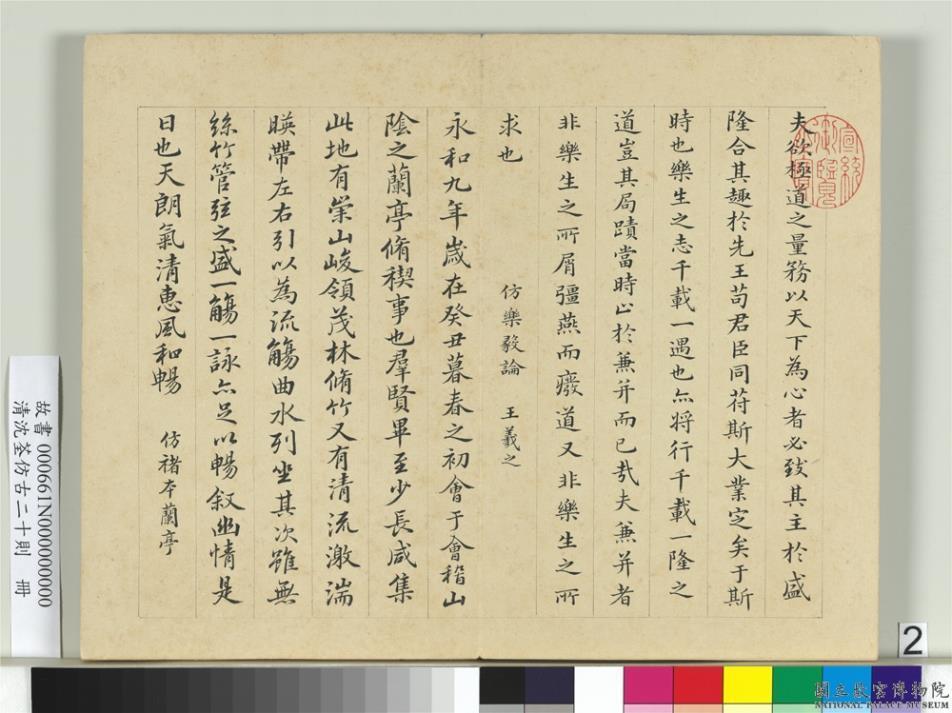 夫欲極道之量務以天下為心者必致其主於盛
隆合其趣於先王苟君臣同苻斯大業定矣于斯
時也樂生之志千載一遇也亦將行千載一隆之
道豈其局蹟當時止於兼并而已哉夫兼并者
非樂生之所屑彊燕而廢道又非樂生之所
求也
仿樂毅論 王羲之
永和九年歲在癸丑暮春之初會于會稽山
陰之蘭亭脩稧事也羣賢畢至少長咸集
此地有崇山峻領茂林脩竹又有清流激湍
暎帶左右引以為流觴曲水列坐其次雖無
絲竹管弦之盛一觴一詠亦足以暢叙幽情是
日也天朗氣清惠風和暢
仿褚本蘭亭
宣統御覽之寶
故書 000661N000000000
清沈荃仿古二十則 冊
2
國立故宮博物院
NATIONAL PALACE MUSEUM